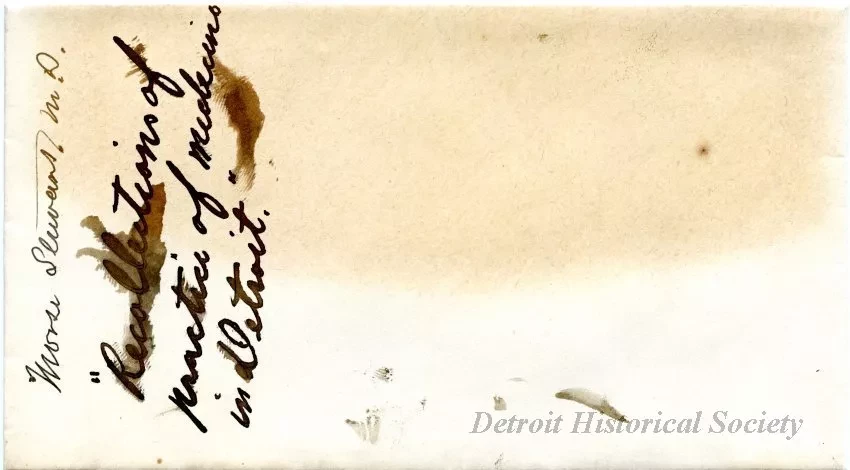 Morse Stewart, M.D.
"Recollections of
practice of Medicine
in Detroit."
Detroit Historical Society